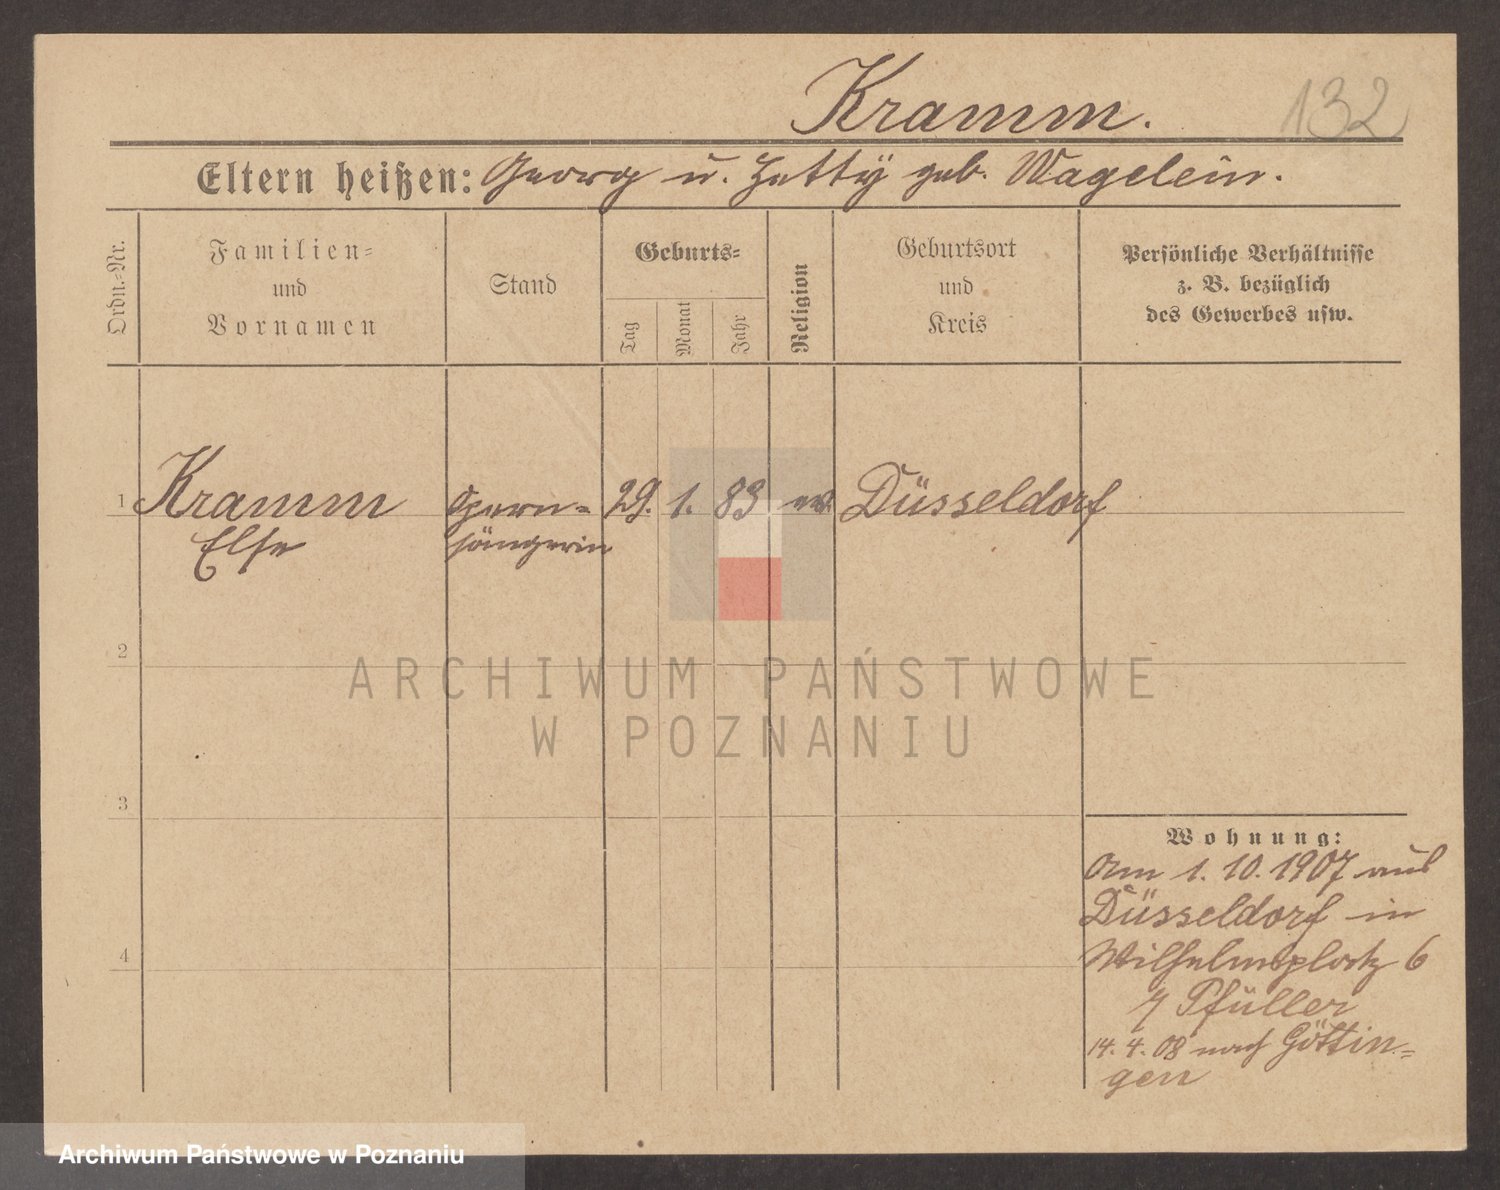 Kramm.
132
Eltern heißen: Georg u. Hetty geb. Wagelein.
Ordn.-Nr.
Familien-
und
Vornamen
Stand
Geburts-
Tag
Monat
Jahr
Religion
Geburtsort
und
Kreis
Persönliche Verhältnisse
z. B. bezüglich
des Gewerbes usw.
1 Kramm Opern- 29. 1. 83 ev Düsseldorf
Else sängerin
2
3
4
Wohnung:
Am 1. 10. 1907 aus
Düsseldorf in
Wilhelmsplatz 6
Pfüller
14. 4. 08 nach Göttin-
gen
ARCHIWUM PAŃSTWOWE
W POZNANIU
Archiwum Państwowe w Poznaniu